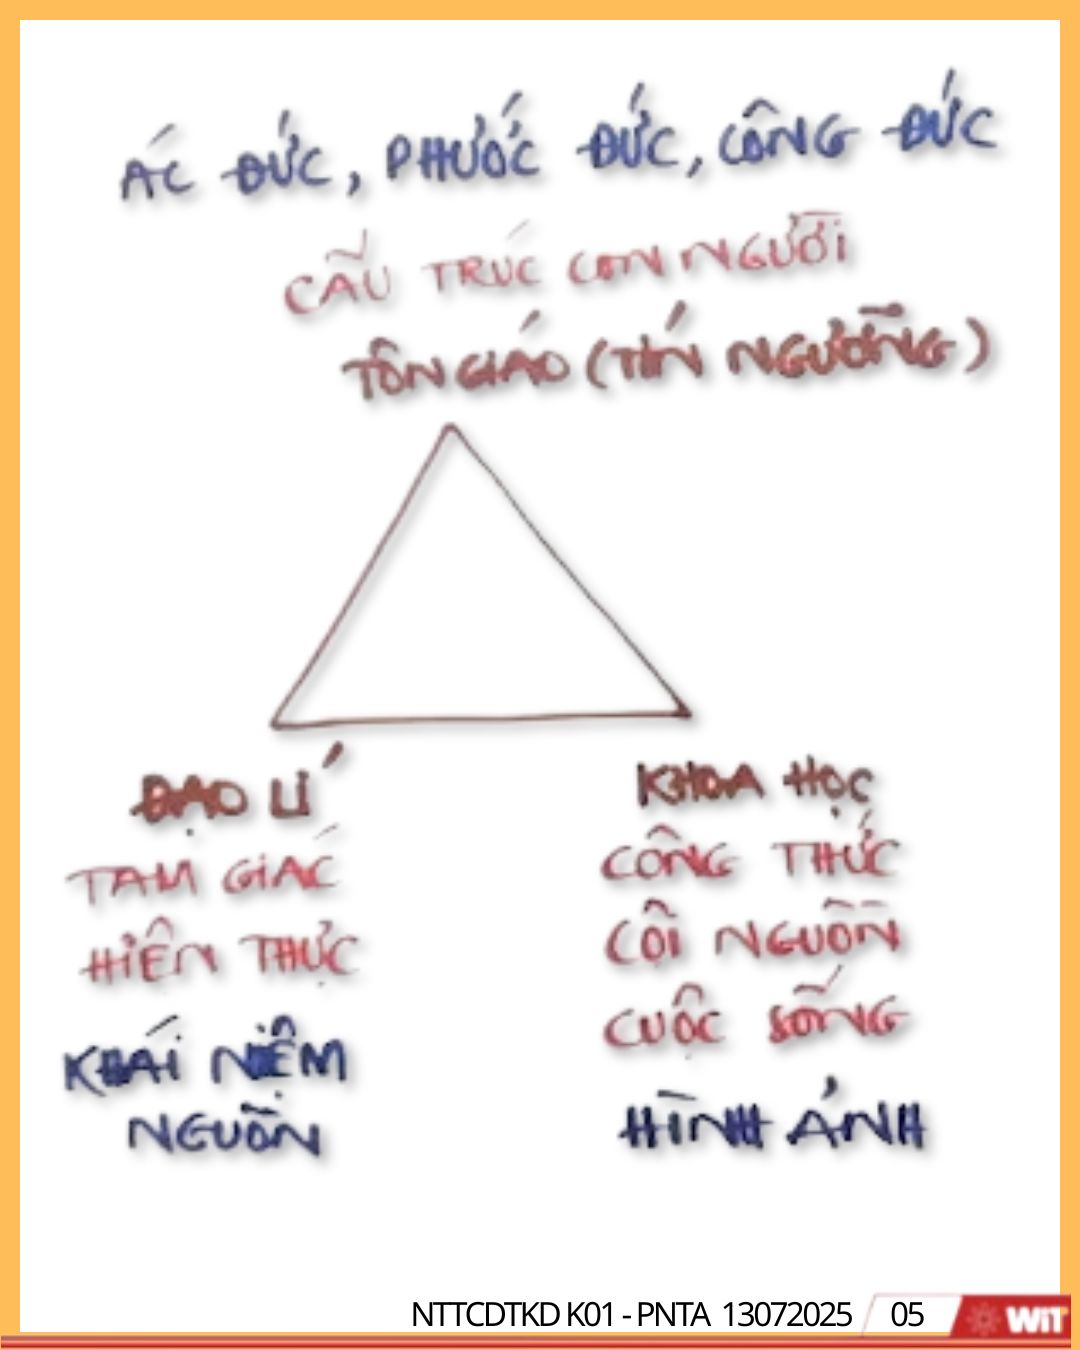 ÁC ĐỨC, PHƯỚC ĐỨC, CÔNG ĐỨC
CẤU TRÚC CON NGƯỜI
TÔN GIÁO (TÍN NGƯỠNG)
ĐẠO LÍ
TAM GIÁC
HIỆN THỰC
KHÁI NIỆM
NGUỒN
KHOA HỌC
CÔNG THỨC
CỘI NGUỒN
CUỘC SỐNG
HÌNH ẢNH
NTTCDTKD K01 - PNTA 13072025 05 WiT